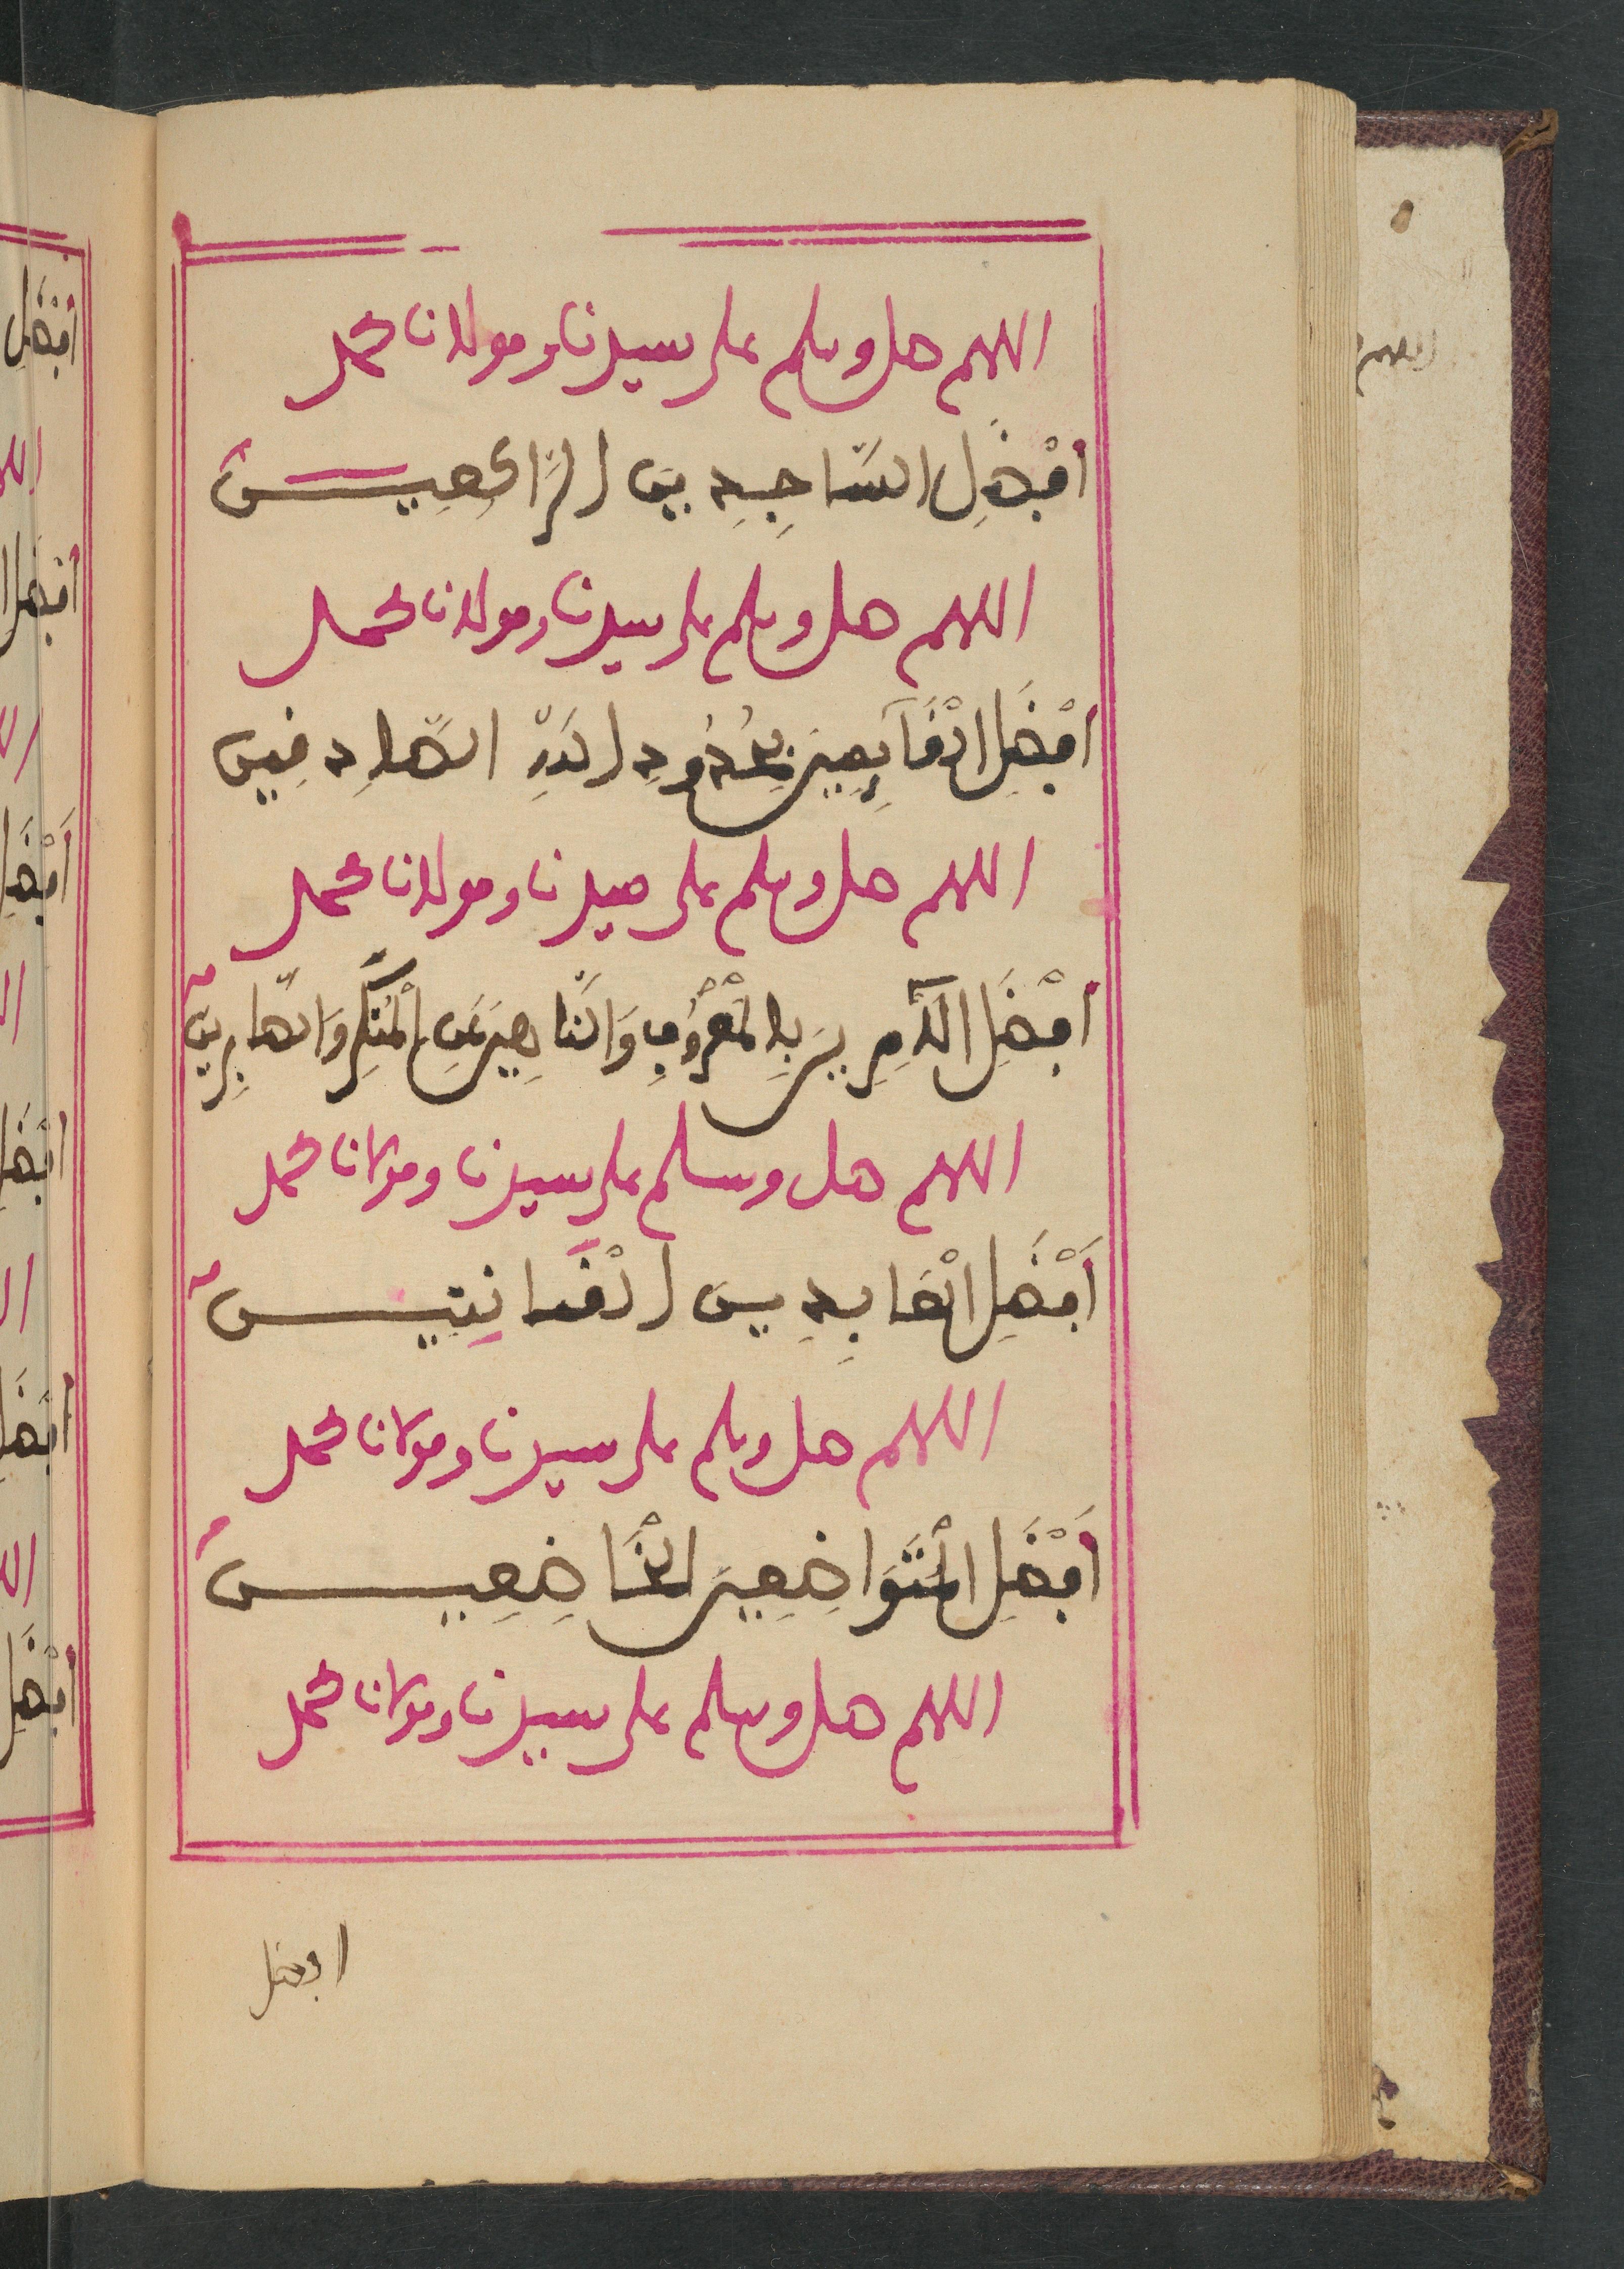 اللهم صل وسلم على سيدنا ومولانا محمد
أَفْضَلِ السَّاجِدِينَ الرَّاكِعِينَ
اللهم صل وسلم على سيدنا ومولانا محمد
أَفْضَلِ الْقَآئِمِينَ بِحُدُودِ اللَّهِ الصَّادِقِينَ
اللهم صل وسلم على سيدنا ومولانا محمد
أَفْضَلِ الْآمِرِينَ بِالْمَعْرُوفِ وَالنَّاهِينَ عَنِ الْمُنكَرِ وَالصَّابِرِينَ
اللهم صل وسلم على سيدنا ومولانا محمد
أَفْضَلِ الْعَابِدِينَ الْقَانِتِينَ
اللهم صل وسلم على سيدنا ومولانا محمد
أَفْضَلِ الْمُتَوَاضِعِينَ الْخَاضِعِينَ
اللهم صل وسلم على سيدنا ومولانا محمد
افضل